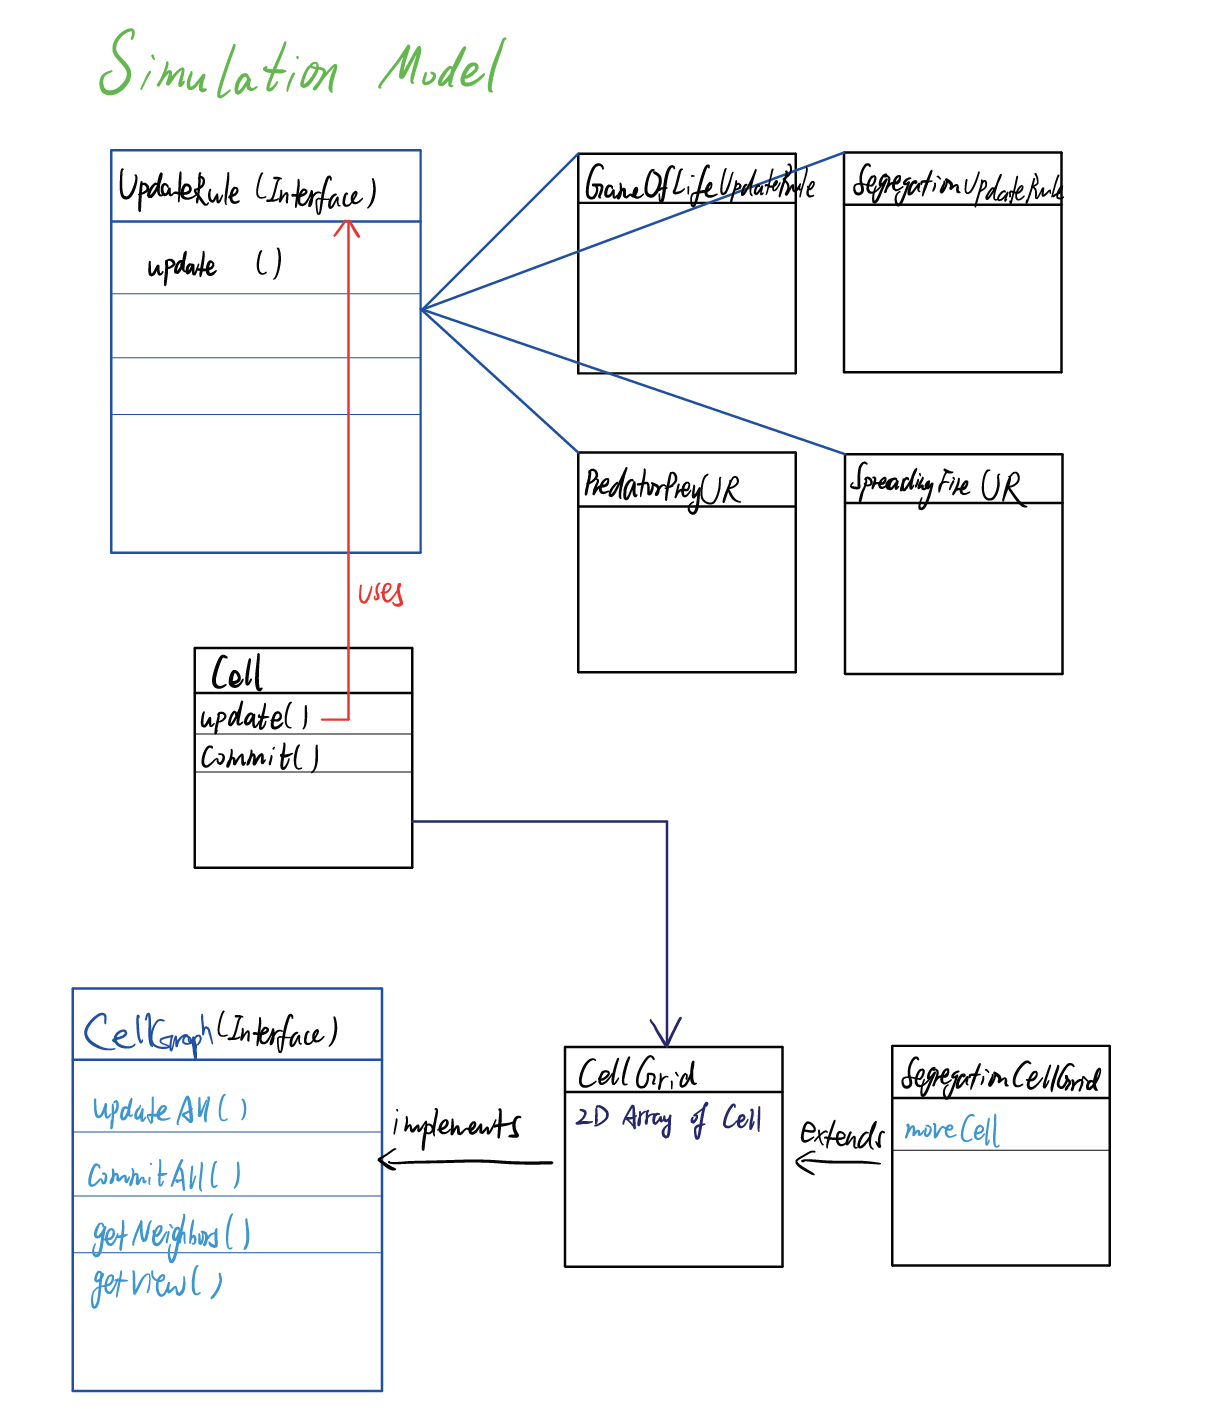 Simulation Model
UpdateRule (Interface)
update ()
GameOfLifeUpdateRule
SegregationUpdateRule
PredatorPreyUR
SpreadingFire UR
uses
Cell
update()
Commit()
CellGraph(Interface)
updateAll()
CommitAll()
getNeighbors()
getView()
implements
CellGrid
2D Array of Cell
extends
SegregationCellGrid
moveCell